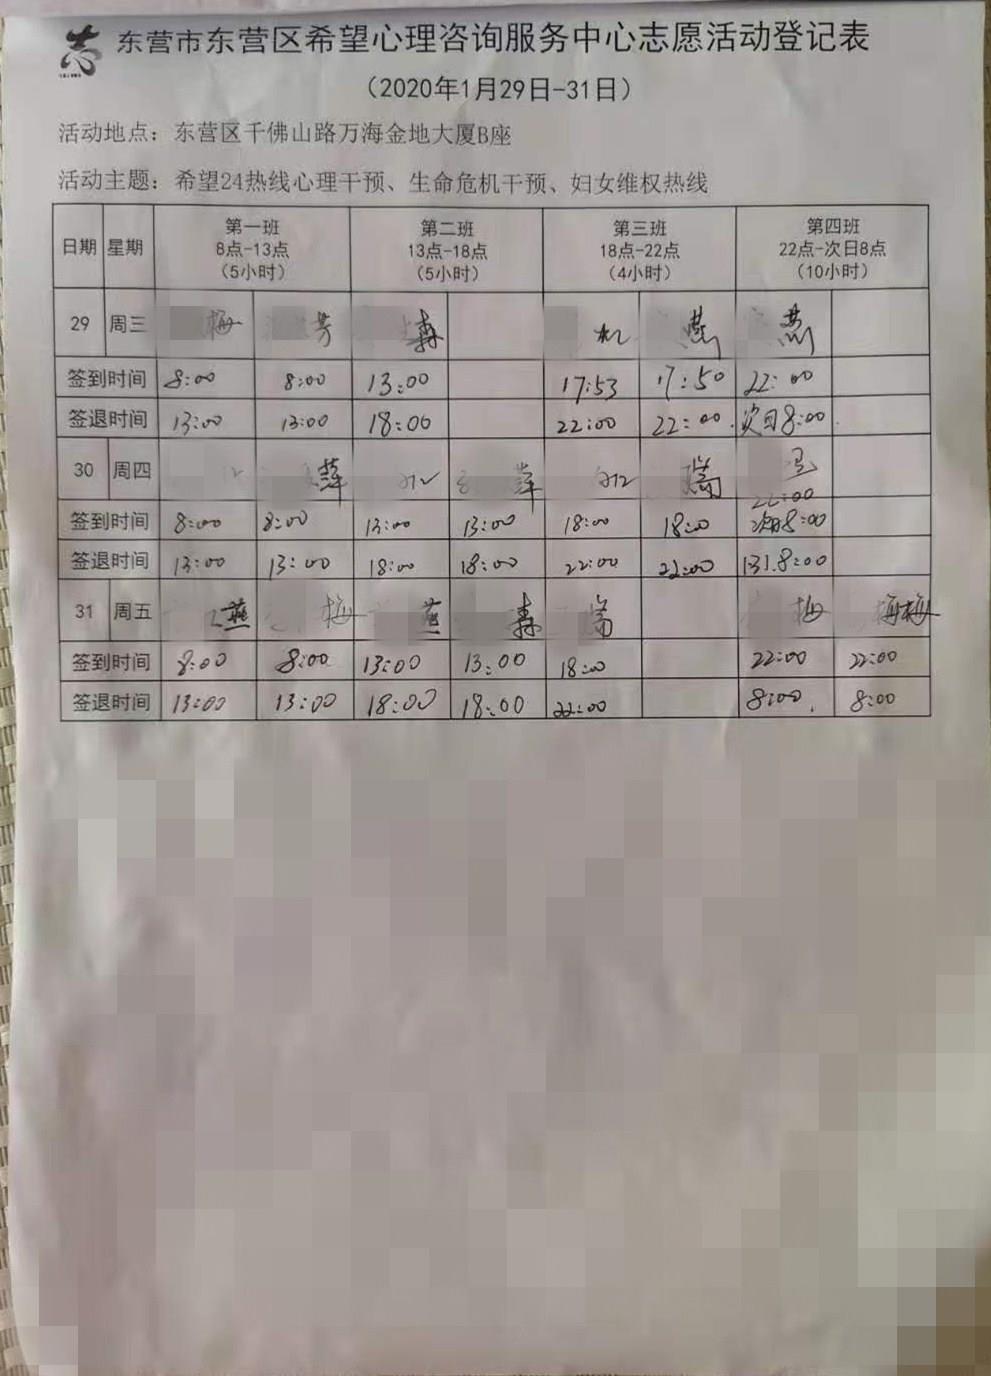 东营市东营区希望心理咨询服务中心志愿活动登记表
（2020年1月29日-31日）
活动地点：东营区千佛山路万海金地大厦B座
活动主题：希望24热线心理干预、生命危机干预、妇女维权热线
日期 星期 第一班 8点-13点 （5小时） 第二班 13点-18点 （5小时） 第三班 18点-22点 （4小时） 第四班 22点-次日8点 （10小时）
29 周三 梅 芳 森 燕 燕
签到时间 8:00 8:00 13:00 17:53 17:50 22:00
签退时间 13:00 13:00 18:00 22:00 22:00 次日8:00
30 周四 萍 萍 瑞
签到时间 8:00 8:00 13:00 13:00 18:00 18:00 22:00 次日8:00
签退时间 13:00 13:00 18:00 18:00 22:00 22:00 131.8:00
31 周五 燕 梅 燕 森 瑞 梅 梅梅
签到时间 8:00 8:00 13:00 13:00 18:00 22:00 22:00
签退时间 13:00 13:00 18:00 18:00 22:00 8:00 8:00